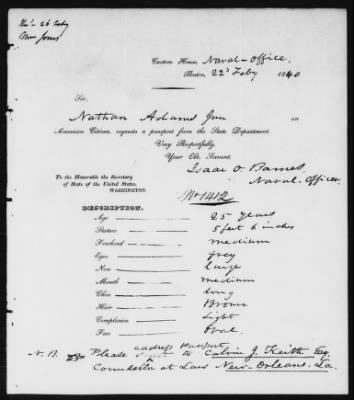 26 Feby
Custom House, Naval-Office.
Boston, 22d Feby 1840
Sir,
Nathan Adams Jun an
American Citizen, requests a passport from the State Department.
Very Respectfully,
Your Obt. Servant.
Isaac O. Barnes,
Naval-Officer.
To the Honorable the Secretary
of State of the United States,
WASHINGTON.
No 1412
DESCRIPTION.
Age 25 years
Stature 5 feet 6 inches
Forehead medium
Eyes grey
Nose large
Mouth medium
Chin long
Hair Brown
Complexion Light
Face Oval.
N.B. Please address passport to Calvin J. Keith Esq.
Counsellor at Law New-Orleans, La.